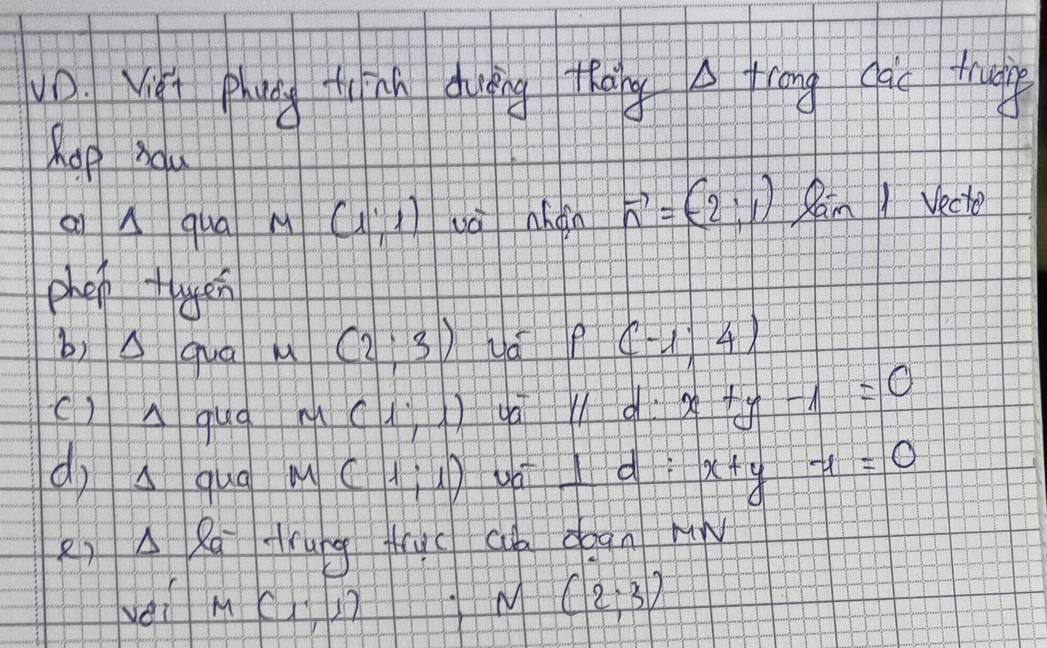 VD. Viết phương trình đường thẳng Δ trong các trường
hợp sau
a) Δ qua M (1; 1) và nhận n⃗ = (2; 1) làm 1 vectơ
pháp tuyến
b) Δ qua M (2; 3) và P (-1; 4)
c) Δ qua M (1; 1) và // d: x + y - 1 = 0
d) Δ qua M (1; 1) và ⊥ d: x + y - 1 = 0
e) Δ là trung trực của đoạn MN
với M (1; 1) ; N (2; 3)